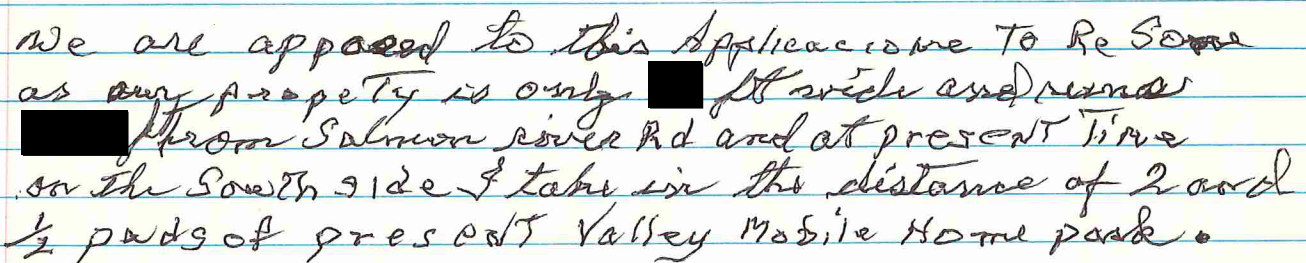 We are apposed to this Applicacione To Re Sone
as our propeTy is only ft wide and runs
from Salmon river Rd and at presenT Time
on the South side I take in the distance of 2 and
1/2 pads of presenT Valley Mobile Home park.